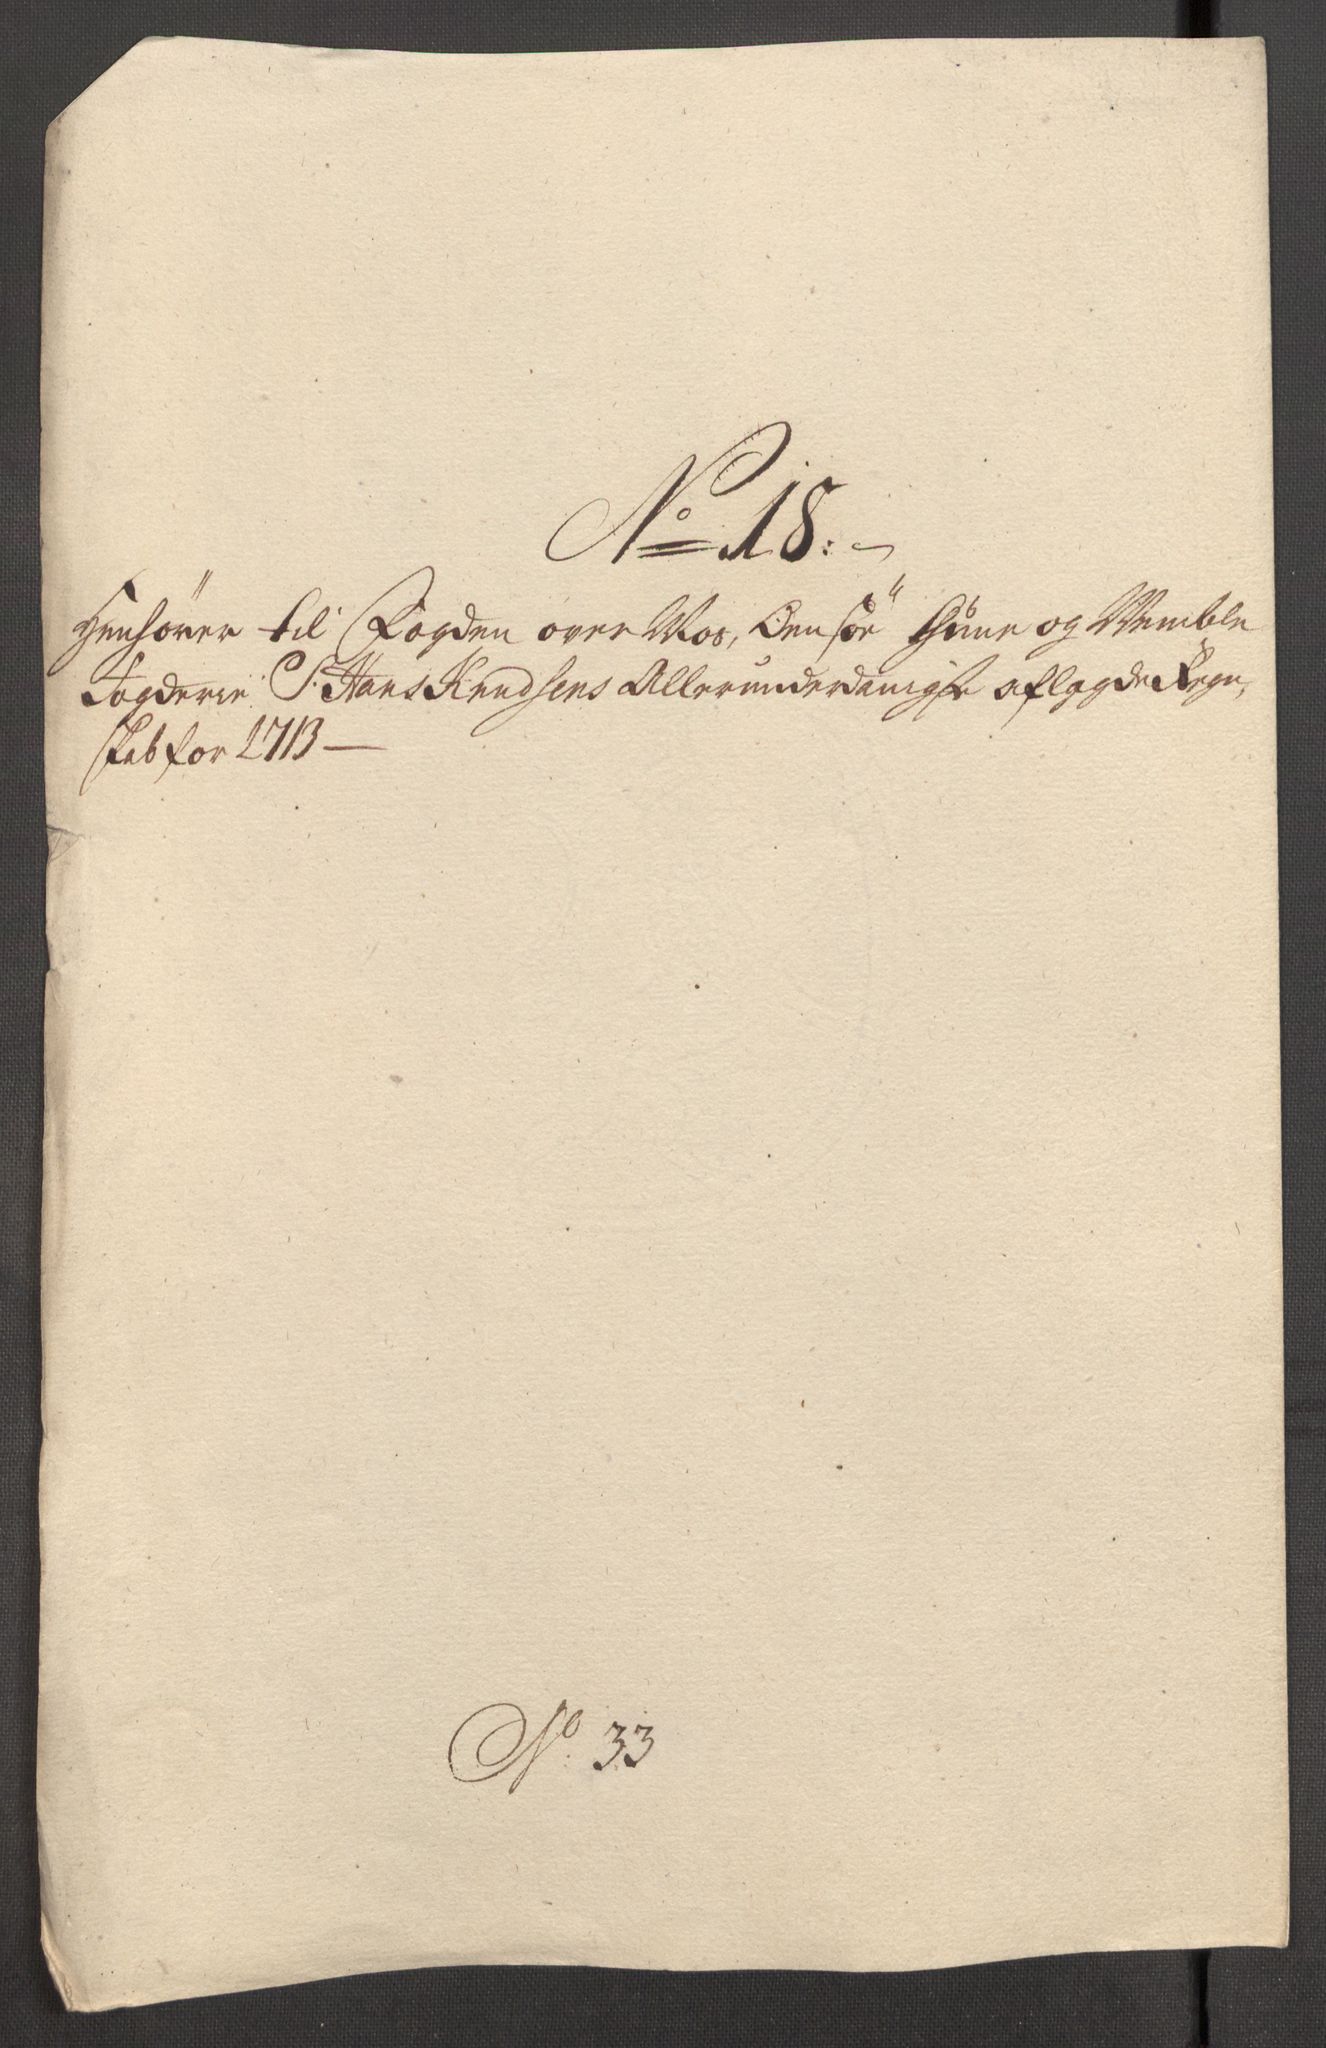 No 18:
Henhører til Fogden over Mos, Onsøe Thune og Wemble
Fogderie Sr. Hans Knudsens Allerunderdanigste aflagde Regn,
skab for 1713 —
No. 33